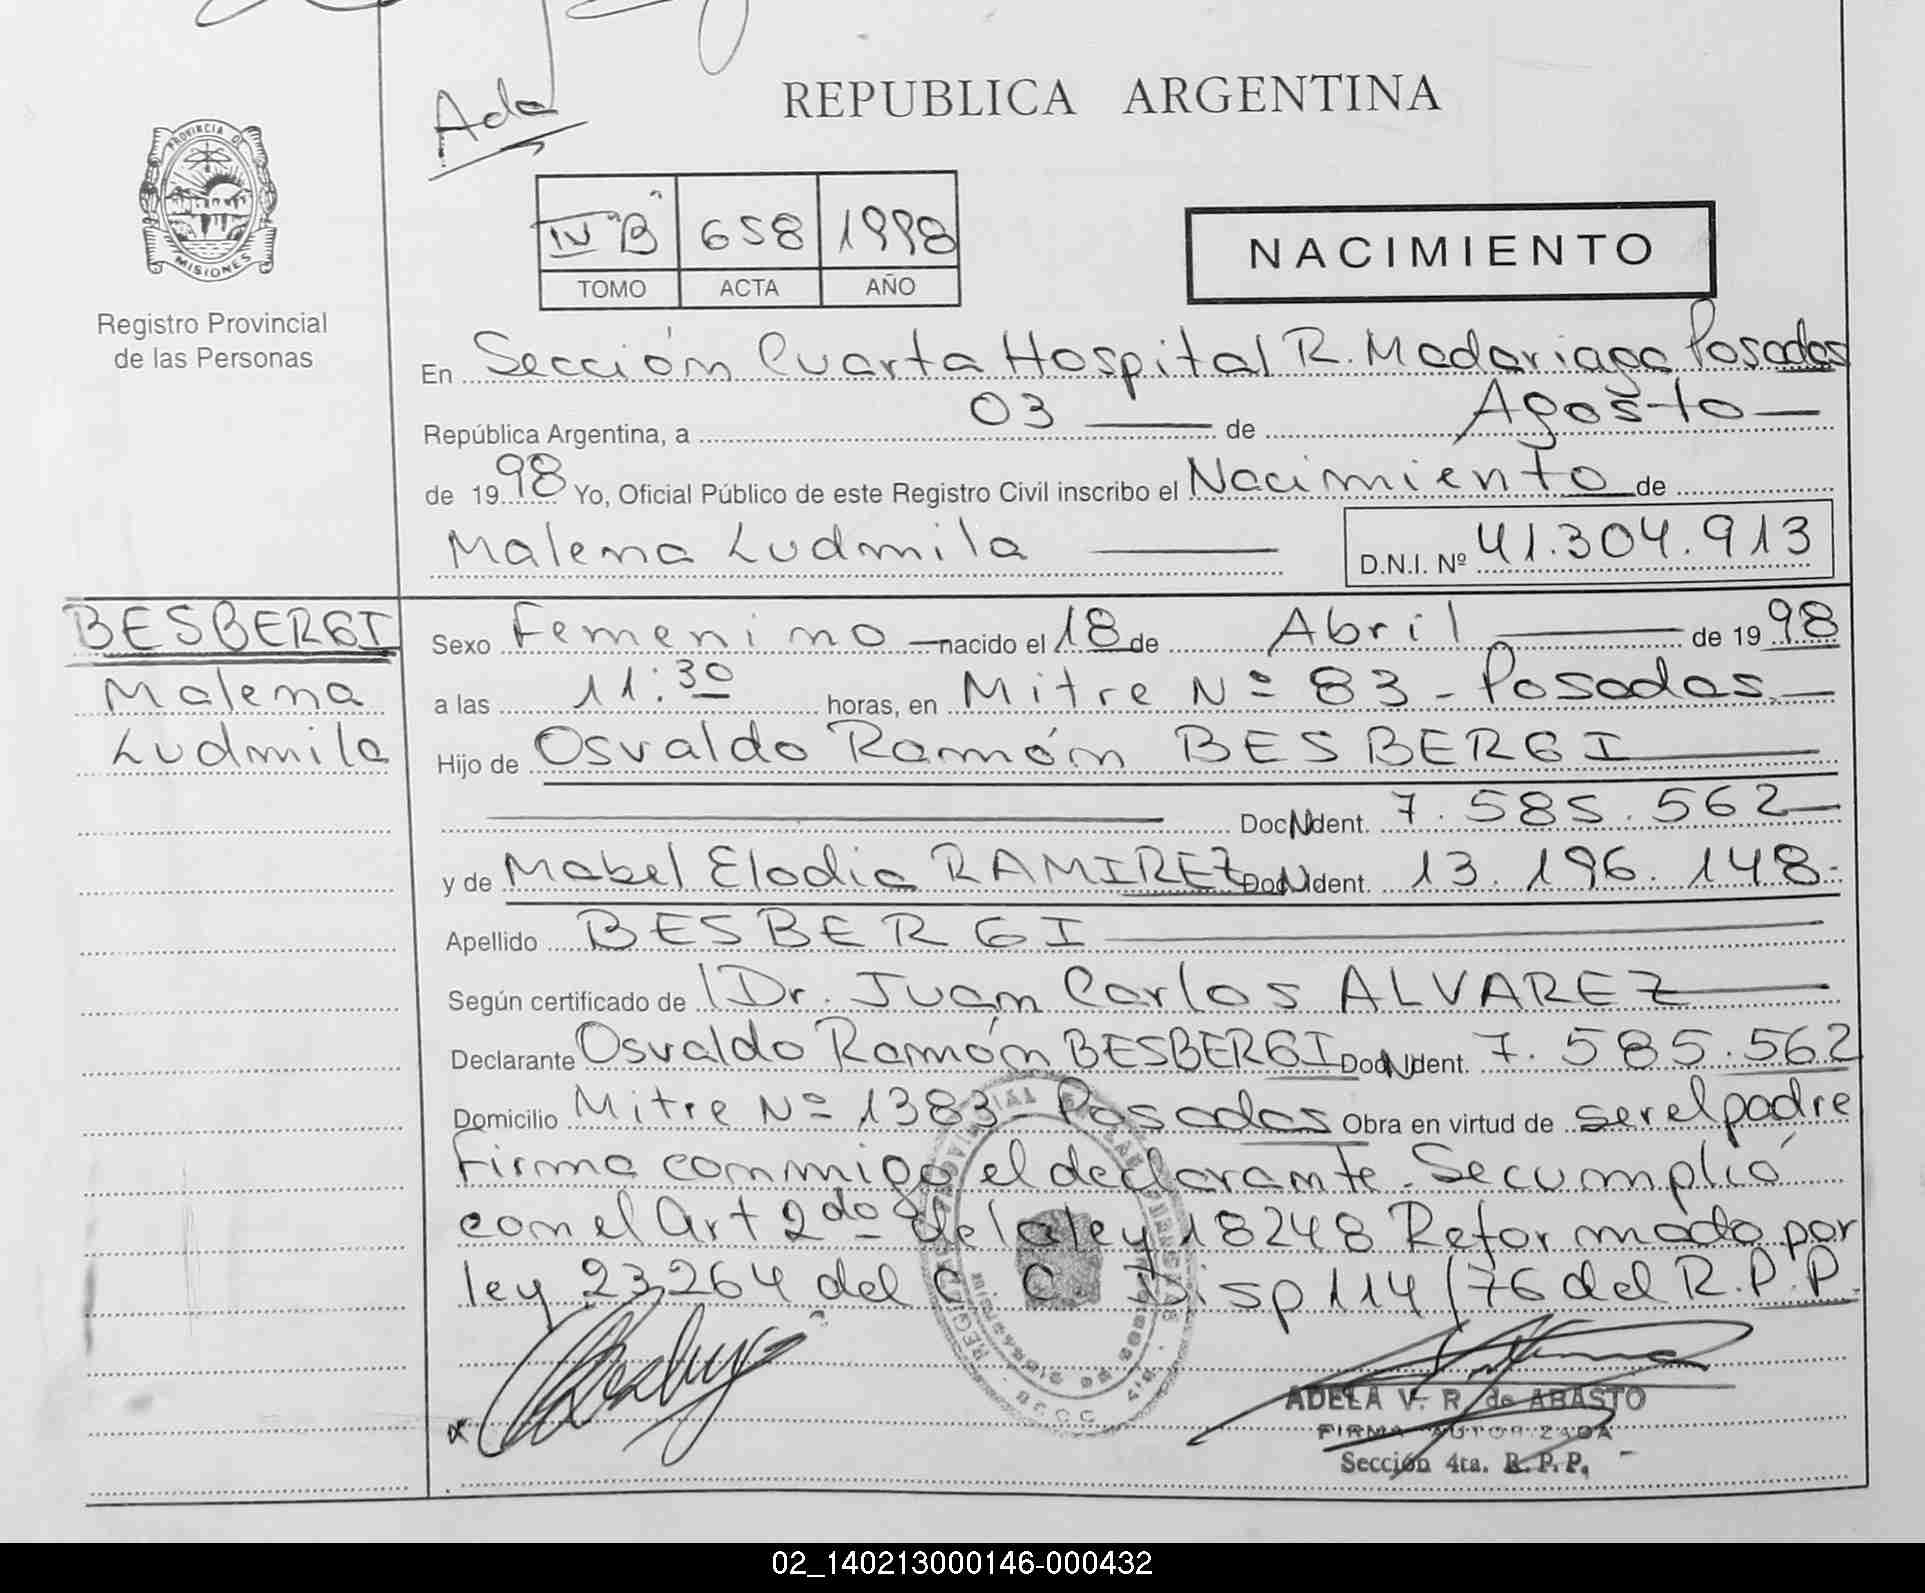 Ada
REPUBLICA ARGENTINA
PROVINCIA DE MISIONES
IV "B" 658 1998
TOMO ACTA AÑO
NACIMIENTO
Registro Provincial
de las Personas
En Sección Cuarta Hospital R. Madariaga Posadas
República Argentina, a 03 de Agosto
de 1998 Yo, Oficial Público de este Registro Civil inscribo el Nacimiento de
Malena Ludmila D.N.I. Nº 41.304.913
BESBERGI
Malena
Ludmila
Sexo Femenino nacido el 18 de Abril de 1998
a las 11:30 horas, en Mitre Nº 83 - Posadas
Hijo de Osvaldo Ramón BESBERGI
Doc N Ident. 7.585.562
y de Mabel Elodia RAMIREZ Doc N Ident. 13.196.148
Apellido BESBERGI
Según certificado de Dr. Juan Carlos ALVAREZ
Declarante Osvaldo Ramón BESBERGI Doc N Ident. 7.585.562
Domicilio Mitre Nº 1383 - Posadas Obra en virtud de ser el padre
Firma conmigo el declarante. Se cumplió
con el Art 2do de la ley 18248 Reformado por
ley 23264 del C C. Disp 114/76 del R.P.P.
ADELA V. R. de ABASTO
FIRMA AUTORIZADA
Sección 4ta. R.P.P.
02_140213000146-000432